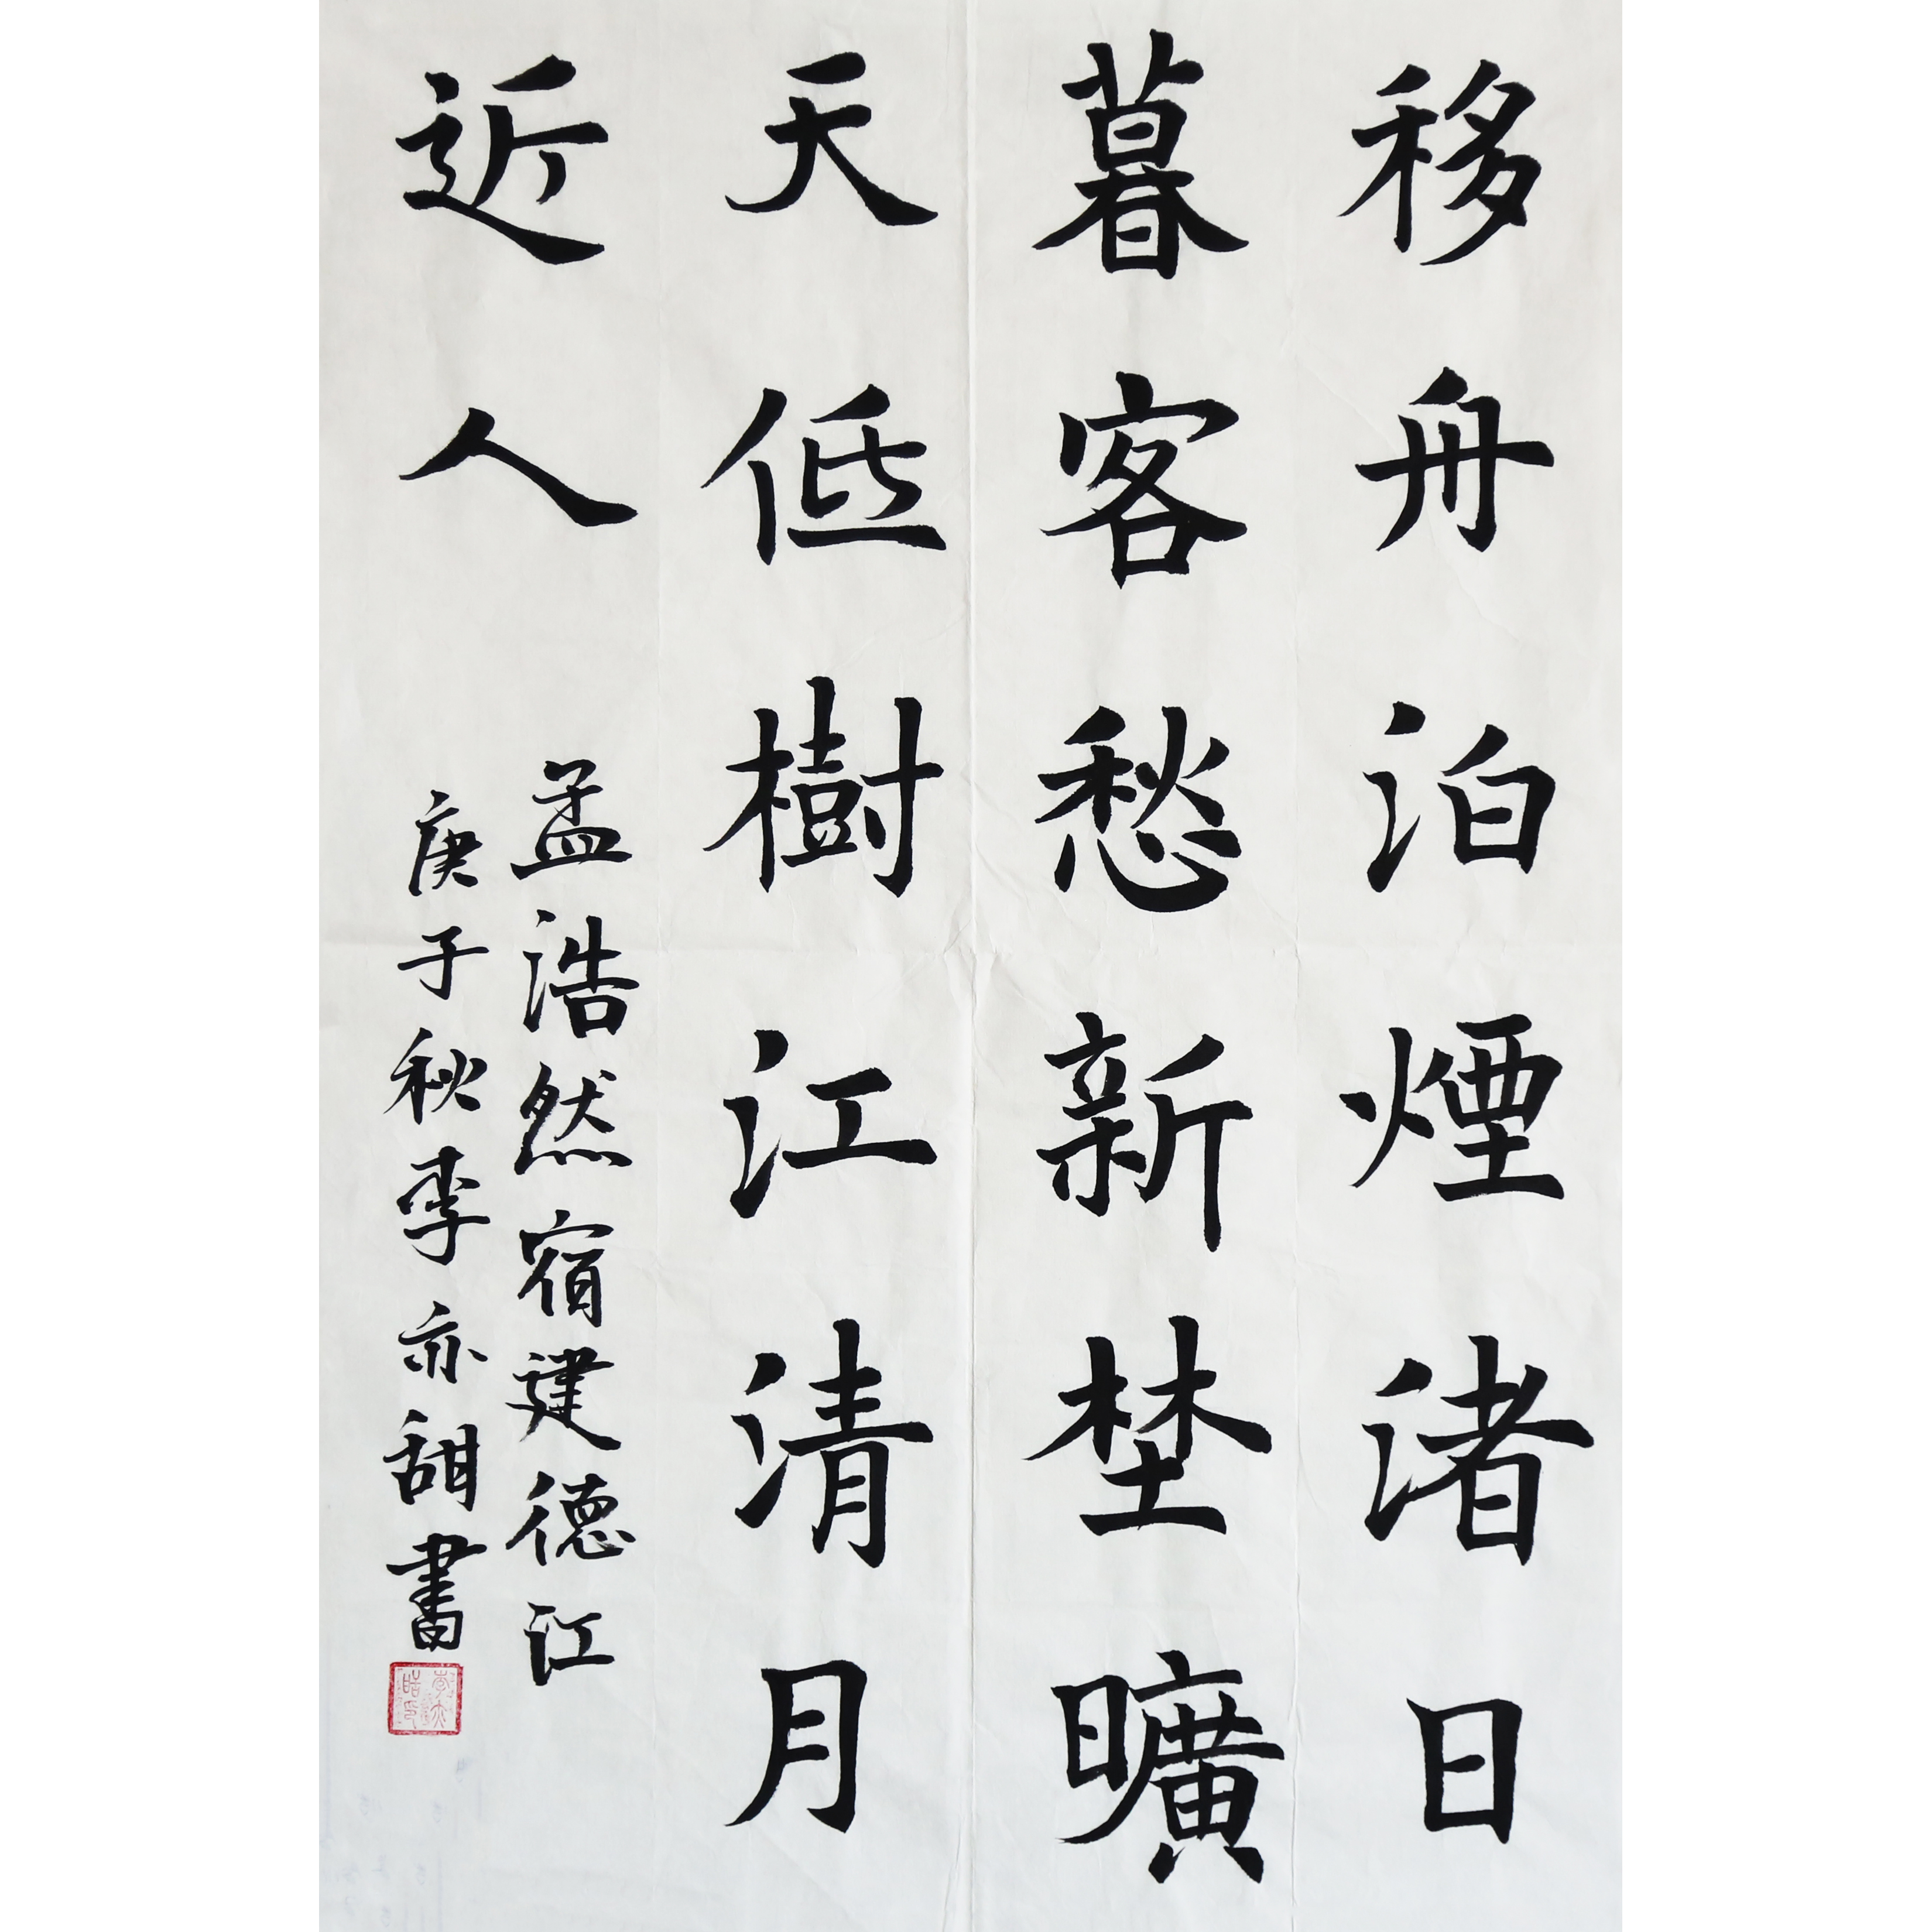 移舟泊煙渚日
暮客愁新埜曠
天低樹江清月
近人
孟浩然宿建德江
庚子秋李亦甜書